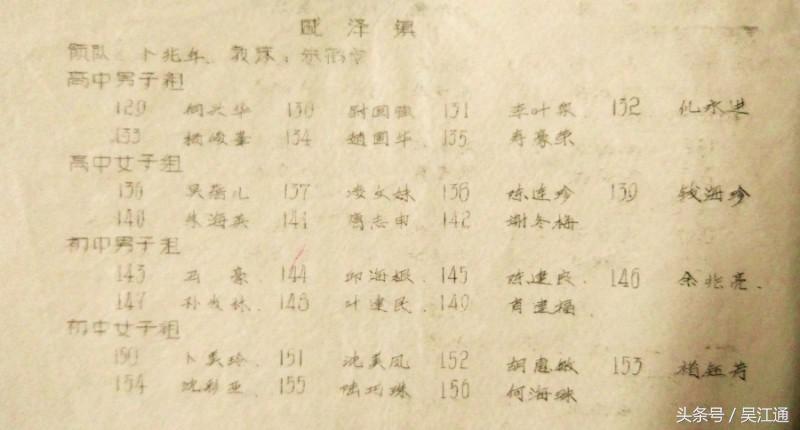 震泽镇
领队：卜兆年 教练：
高中男子组
129 何兴华 130 尉国强 131 李叶泉 132 仇永进
133 杨峻峯 134 赵国华 135 寿豪荣
高中女子组
136 吴蓓儿 137 凌文妹 138 陈连珍 139 钱海珍
140 朱海英 141 周志申 142 谢冬梅
初中男子组
143 豪 144 邱海振 145 陈建良 146 余兆亮
147 孙 林 148 叶建民 149 肖建福
初中女子组
150 卜美玲 151 沈美凤 152 胡惠敏 153 杨钰芳
154 沈彩亚 155 陆巧珠 156 何海珠
头条号／吴江通